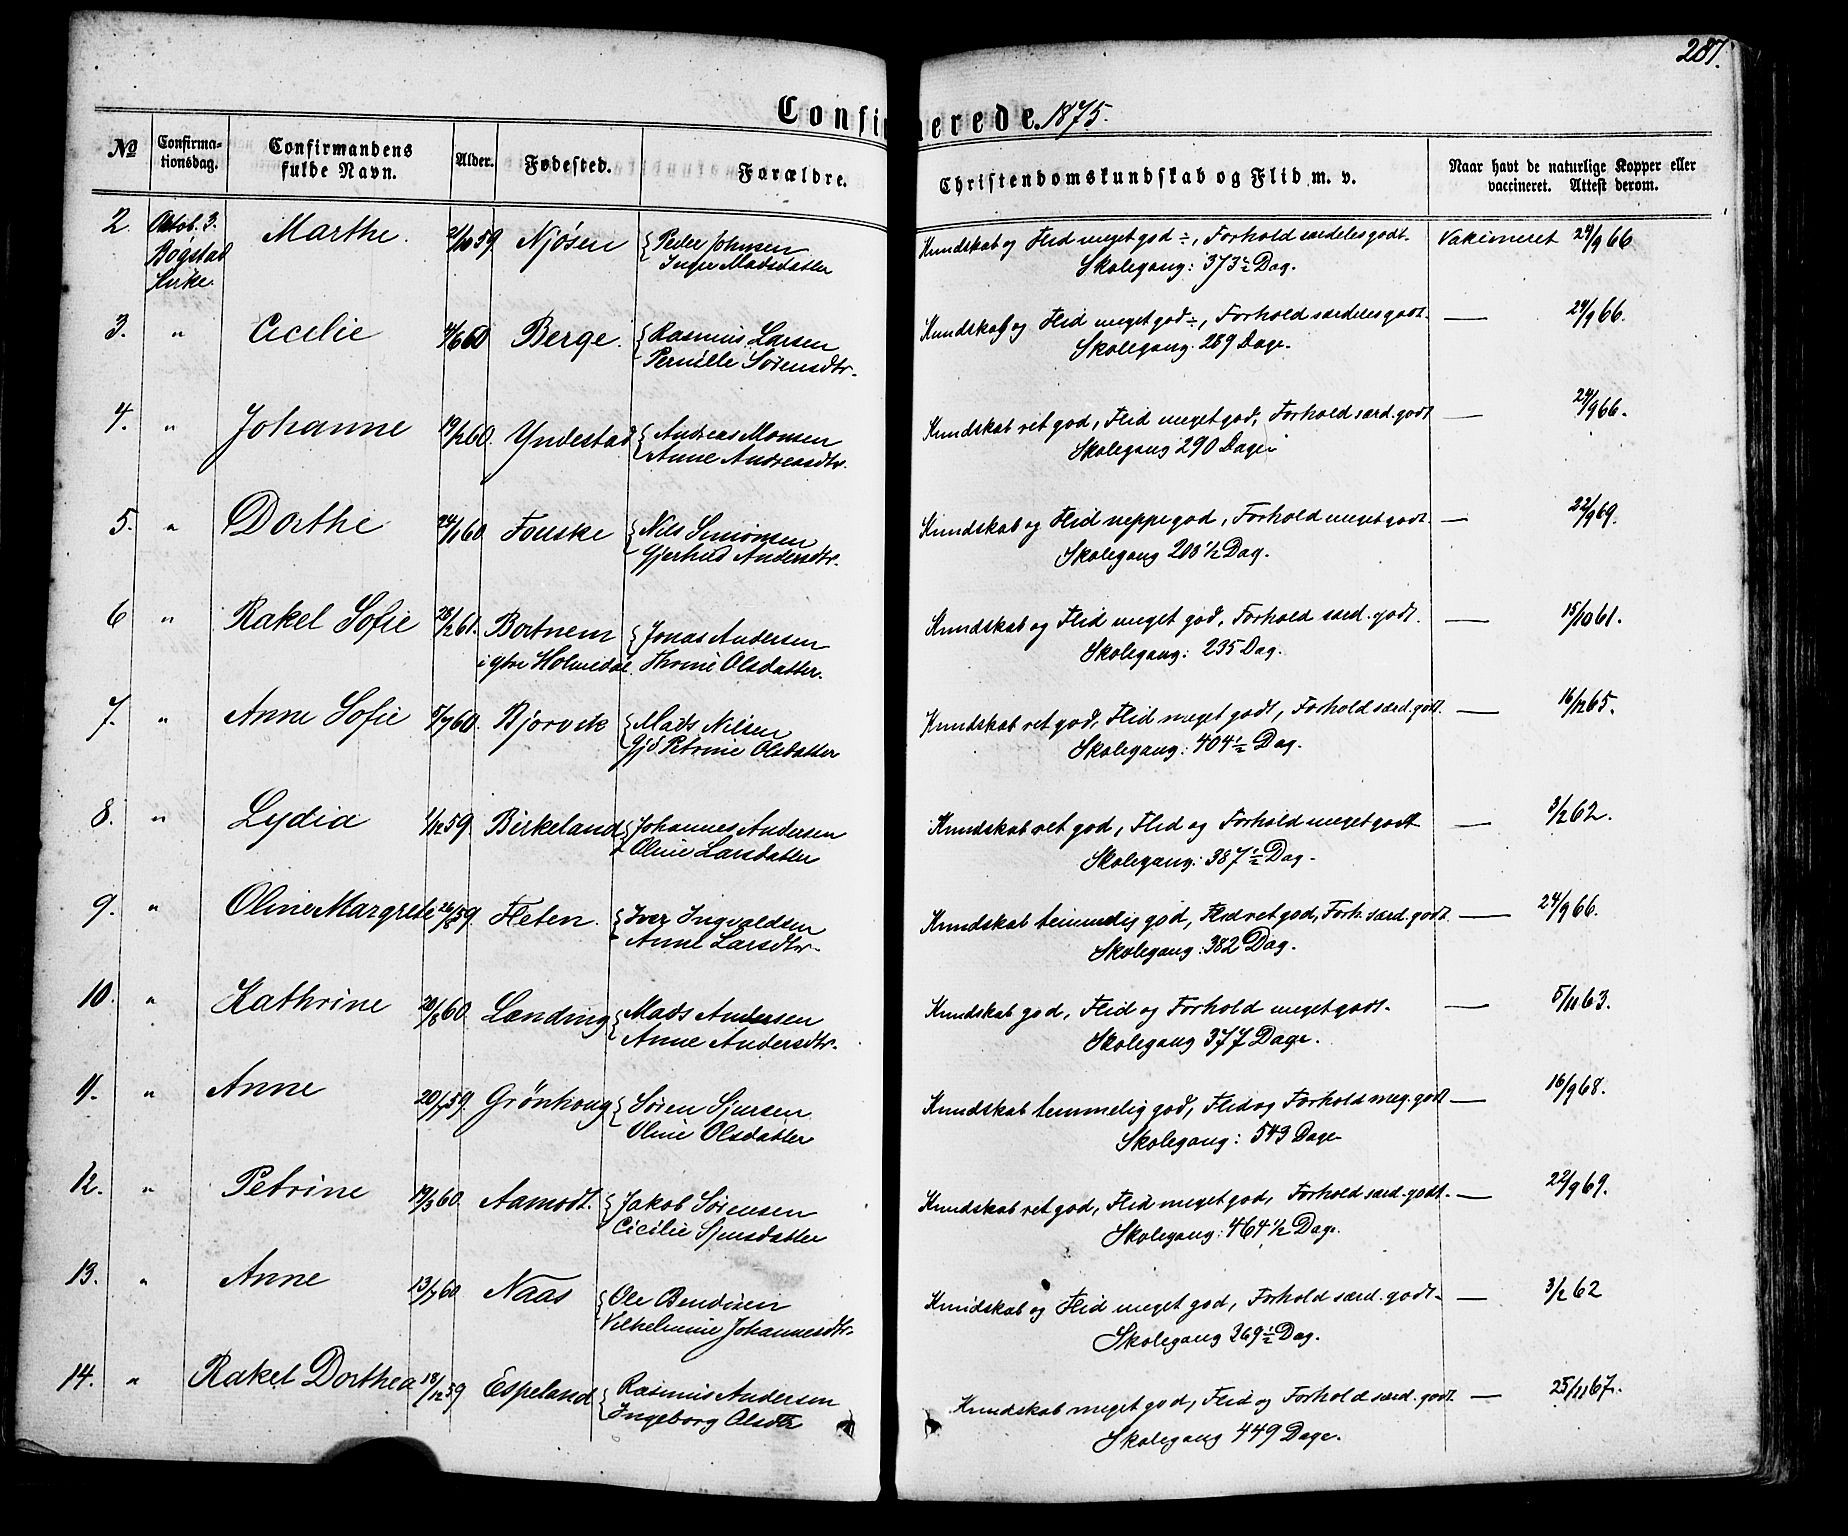 287.
Confirmerede. 1875.
No Confirmationsdag. Confirmandens fulde Navn. Alder. Fødested. Forældre. Christendomskundskab og Flid m. v. Naar havt de naturlige Kopper eller vaccineret. Attest derom.
2. Oktob. 3. Marthe. 59 Njøsen Peder Johnsen Kundskab og Flid meget god ÷, Forhold særdeles godt. Vakcineret 24/9 66
Bøgstad Kirke. Inger Madsdatter Skolegang: 373½ Dag.
3. " Cecilie 60 Berge. Rasmus Larsen Kundskab og Flid meget god ÷, Forhold særdeles godt. — 24/9 66.
Pernille Sørensdtr. Skolegang. 289 Dage.
4. " Johanne 19/2 60. Yndestad Andreas Monsen Kundskab ret god, Flid meget god, Forhold særd. godt — 24/9 66.
Anne Andreasdtr. Skolegang 290 Dage
5. " Dorthe 24/1 60 Fouske Nils Simonsen Kundskab og Flid neppe god, Forhold meget godt. — 22/9 69.
Gjertrud Andersdtr. Skolegang 208½ Dag.
6 " Rakel Sofie 28/2 61. Bortnem Jonas Andersen Kundskab og Flid meget god, Forhold særd. godt. — 15/10 61.
i ytre Holmedal. Thrine Olsdatter. Skolegang: 235 Dag.
7. " Anne Sofie 5/7 60. Bjorvik Mads Nilsen Kundskab ret god, Flid meget godt, Forhold særd. godt. — 16/12 65.
Gjd Petrine Olsdatter Skolegang: 404½ Dag.
8. " Lydia 1/12 59. Birkeland Johannes Andersen Kundskab ret god, Flid og Forhold meget godt — 3/2 62.
Oline Larsdatter Skolegang: 387½ Dag.
9. " Oline Margrete 26/8 59. Fleten. Iver Ingvaldsen Kundskab temmelig god, Flid ret god, Forh. særd. godt. — 24/9 66.
Anne Larsdtr. Skolegang: 382 Dag.
10. " Kathrine 20/8 60. Lending Mads Andersen Kundskab god, Flid og Forhold meget godt. — 5/11 63.
Anne Andersdtr. Skolegang 377 Dage.
11. " Anne 20/7 59. Grönhoug Søren Sjursen Kundskab temmelig god, Flid og Forhold meg. godt — 16/9 68.
Oline Olsdatter Skolegang: 543 Dage
12. " Petrine 19/3 60. Aamodt. Jakob Sørensen Kundskab ret god, Flid meget god, Forhold særd. godt. — 22/9 69.
Cicilie Sjursdatter Skolegang: 464½ Dage.
13. " Anne 13/7 60 Naas Ole Bendixen Kundskab og Flid meget god, Forhold særd. godt. — 3/2 62
Vilhelmine Johannesdtr. Skolegang 369½ Dag.
14. " Rakel Dorthea 18/12 59 Espeland Rasmus Andersen Kundskab meget god, Flid og Forhold særd. godt — 25/11 67.
Ingeborg Olsdtr Skolegang 449 Dage.